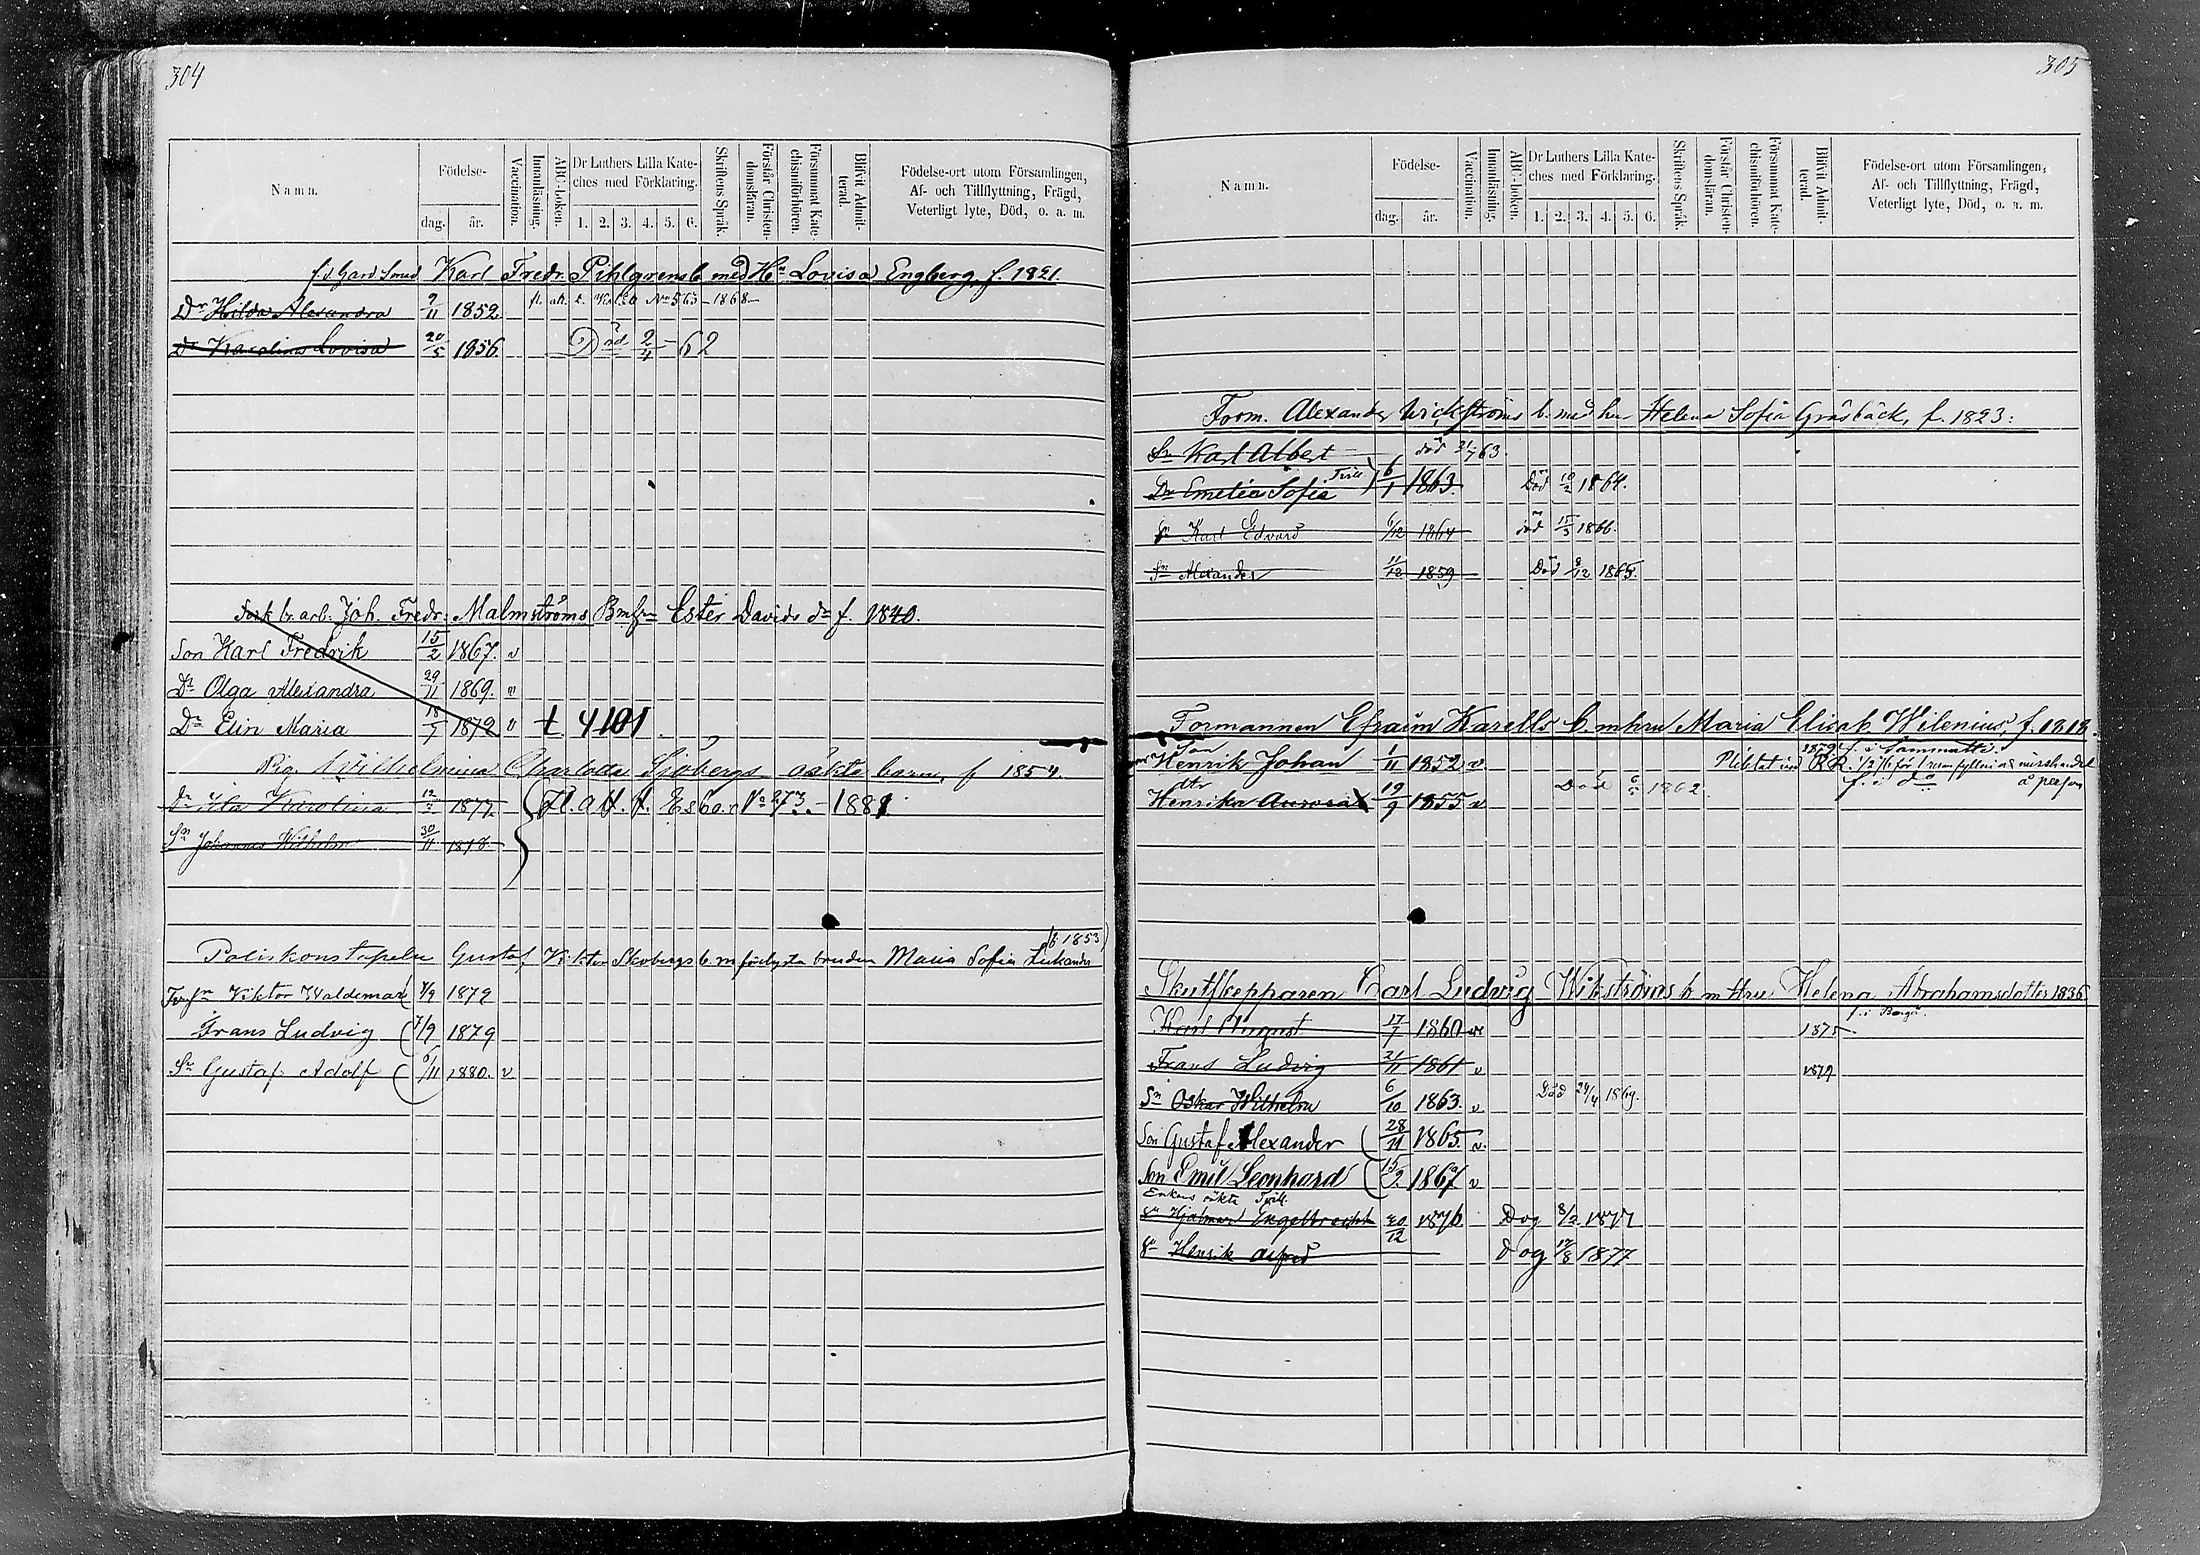 304
Namn.
Födelse-
dag.
år.
Vaccination.
Innanläsning.
ABC-boken.
Dr Luthers Lilla Kate-
ches med Förklaring.
1. 2. 3. 4. 5. 6.
Skriftens Språk.
Förstår Christen-
domsläran.
Försummat Kate-
chismiförhören.
Blifvit Admit-
terad.
Födelse-ort utom Församlingen,
Af- och Tillflyttning, Frägd,
Veterligt lyte, Död, o. a. m.
f.d. Gard Smed Karl Fredr. Pihlgrens b. med Hu Lovisa Engberg, f. 1821.
Dr Hilda Alexandra 9/11 1852 No 563-1868
Dr Karolina Lovisa 20/5 1856 Död 2/4-62
br. arb. Joh. Fredr. Malmströms B m fru Ester Davids dr f. 1840.
Son Karl Fredrik 15/2 1867. v
Dr Olga Alexandra 29/11 1869. v
Dr Elin Maria 18/7 1872 v t. 4101
Pig. Wilhelmina Charlotta Sjöbergs oäkta barn, f 1854.
Dr Ida Karolina 12/2 1877. Fl. att. t. Esbo. No 273.-1881.
Sn Johannes Wilhelm 30/11 1878
Poliskonstapeln Gustaf Viktor Skobergs b. m förlofta bruden Maria Sofia
(f. 1853)
Viktor Waldemar 7/9 1879
Frans Ludvig 7/9 1879
Sn Gustaf Adolf 6/11 1880. v
305
Namn.
Födelse-
dag.
år.
Vaccination.
Innanläsning.
ABC-boken.
Dr Luthers Lilla Kate-
ches med Förklaring.
1. 2. 3. 4. 5. 6.
Skriftens Språk.
Förstår Christen-
domsläran.
Försummat Kate-
chismiförhören.
Blifvit Admit-
terad.
Födelse-ort utom Församlingen,
Af- och Tillflyttning, Frägd,
Veterligt lyte, Död, o. a. m.
Form. Alexander Wickströms b. med hu Helena Sofia Gräsbäck, f. 1823:
Sn Karl Albert död 21/7 63.
Dr Emelia Sofia Tvill 6/1 1863. Död 10/2 1864.
Sn Karl Edvard 6/12 1864 död 15/3 1866.
Sn Alexander 11/12 1859 Död 9/12 1865.
Formannen Efraim Karells b. m hru Maria Elisab. Wilenius, f. 1818.
Son Henrik Johan 1/11 1852 v 1879 f. i Sammatti.
dtr Henrika Aurora 19/9 1855 v Död 1862. f. i do å person
Skutskepparen Carl Ludvig Wikströms b m Hru Helena Abrahamsdotter 1836
f. i Borgå
Karl August 17/7 1860 v 1875
Frans Ludvig 21/11 1861 v 1879
Sn Oskar Wilhelm 6/10 1863. v Död 24/4 1869.
Son Gustaf Alexander 28/11 1865. v.
Son Emil Leonhard 15/2 1867 v
Enkans oäkta Tvill.
Sn Hjalmar Engelbrecht 20/12 1876 Dog 8/2 1877
Sn Henrik Alfred Dog 17/8 1877